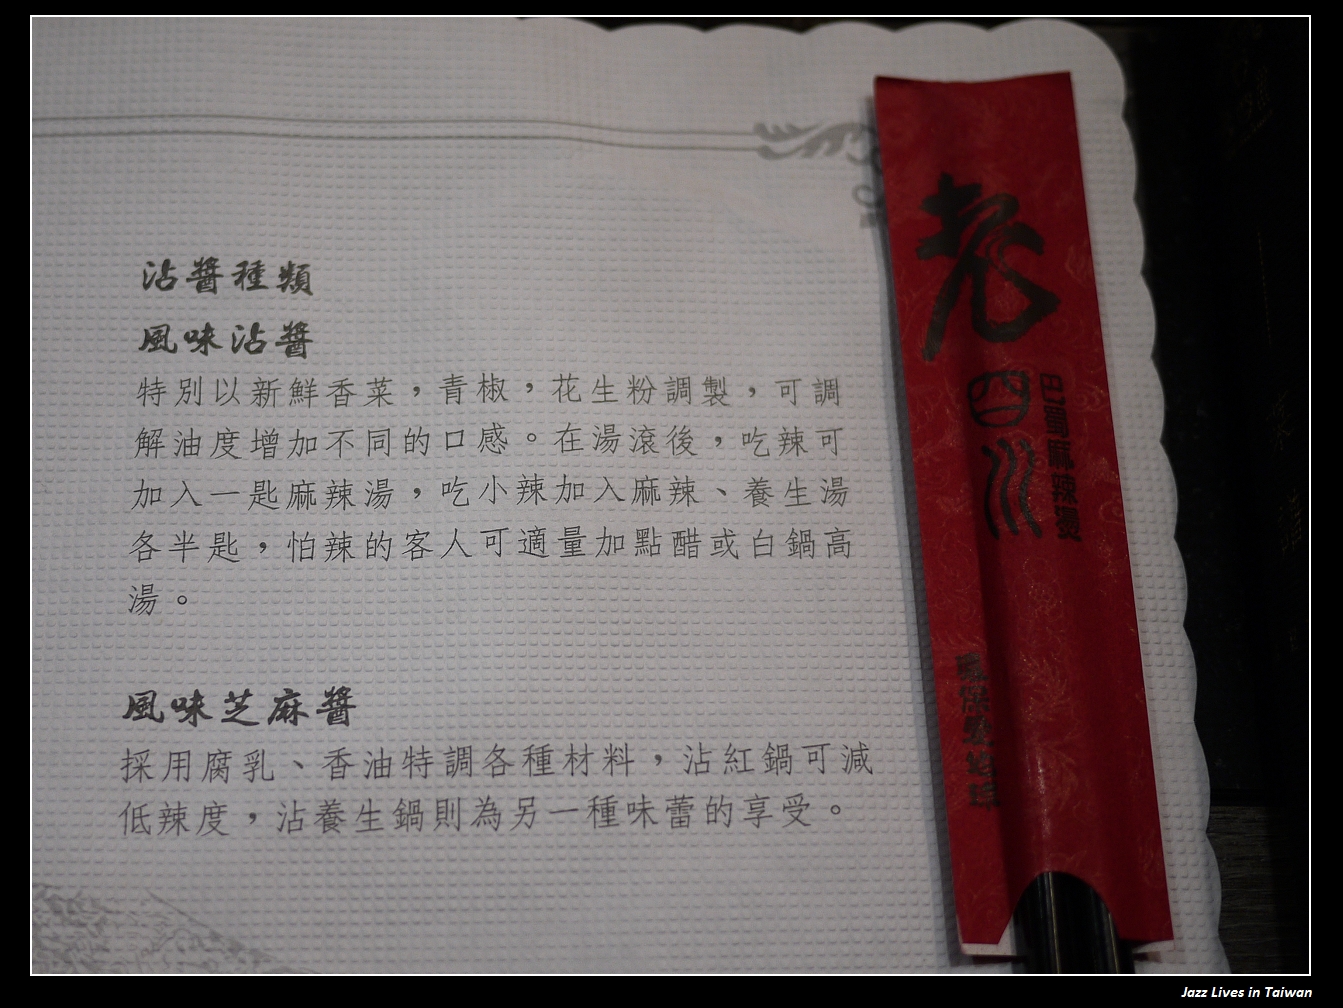 沾醬種類
風味沾醬
特別以新鮮香菜，青椒，花生粉調製，可調
解油度增加不同的口感。在湯滾後，吃辣可
加入一匙麻辣湯，吃小辣加入麻辣、養生湯
各半匙，怕辣的客人可適量加點醋或白鍋高
湯。
風味芝麻醬
採用腐乳、香油特調各種材料，沾紅鍋可減
低辣度，沾養生鍋則為另一種味蕾的享受。
老四川
巴蜀麻辣燙
Jazz Lives in Taiwan